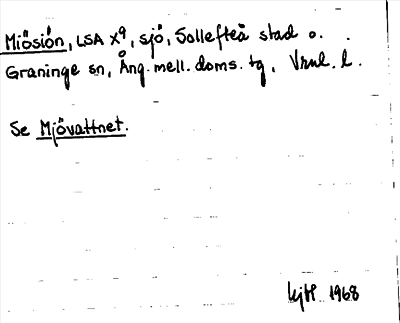 Miösión, LSA X9, sjö, Sollefteå stad o.
Graninge sn, Ång. mell. doms. tg, Vrnl. l.
Se Mjövattnet.
1968